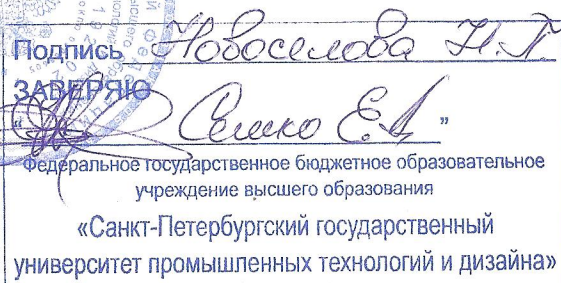 Подпись Новоселова Н.Г.
ЗАВЕРЯЮ
" Сешко Е.А "
Федеральное государственное бюджетное образовательное
учреждение высшего образования
«Санкт-Петербургский государственный
университет промышленных технологий и дизайна»